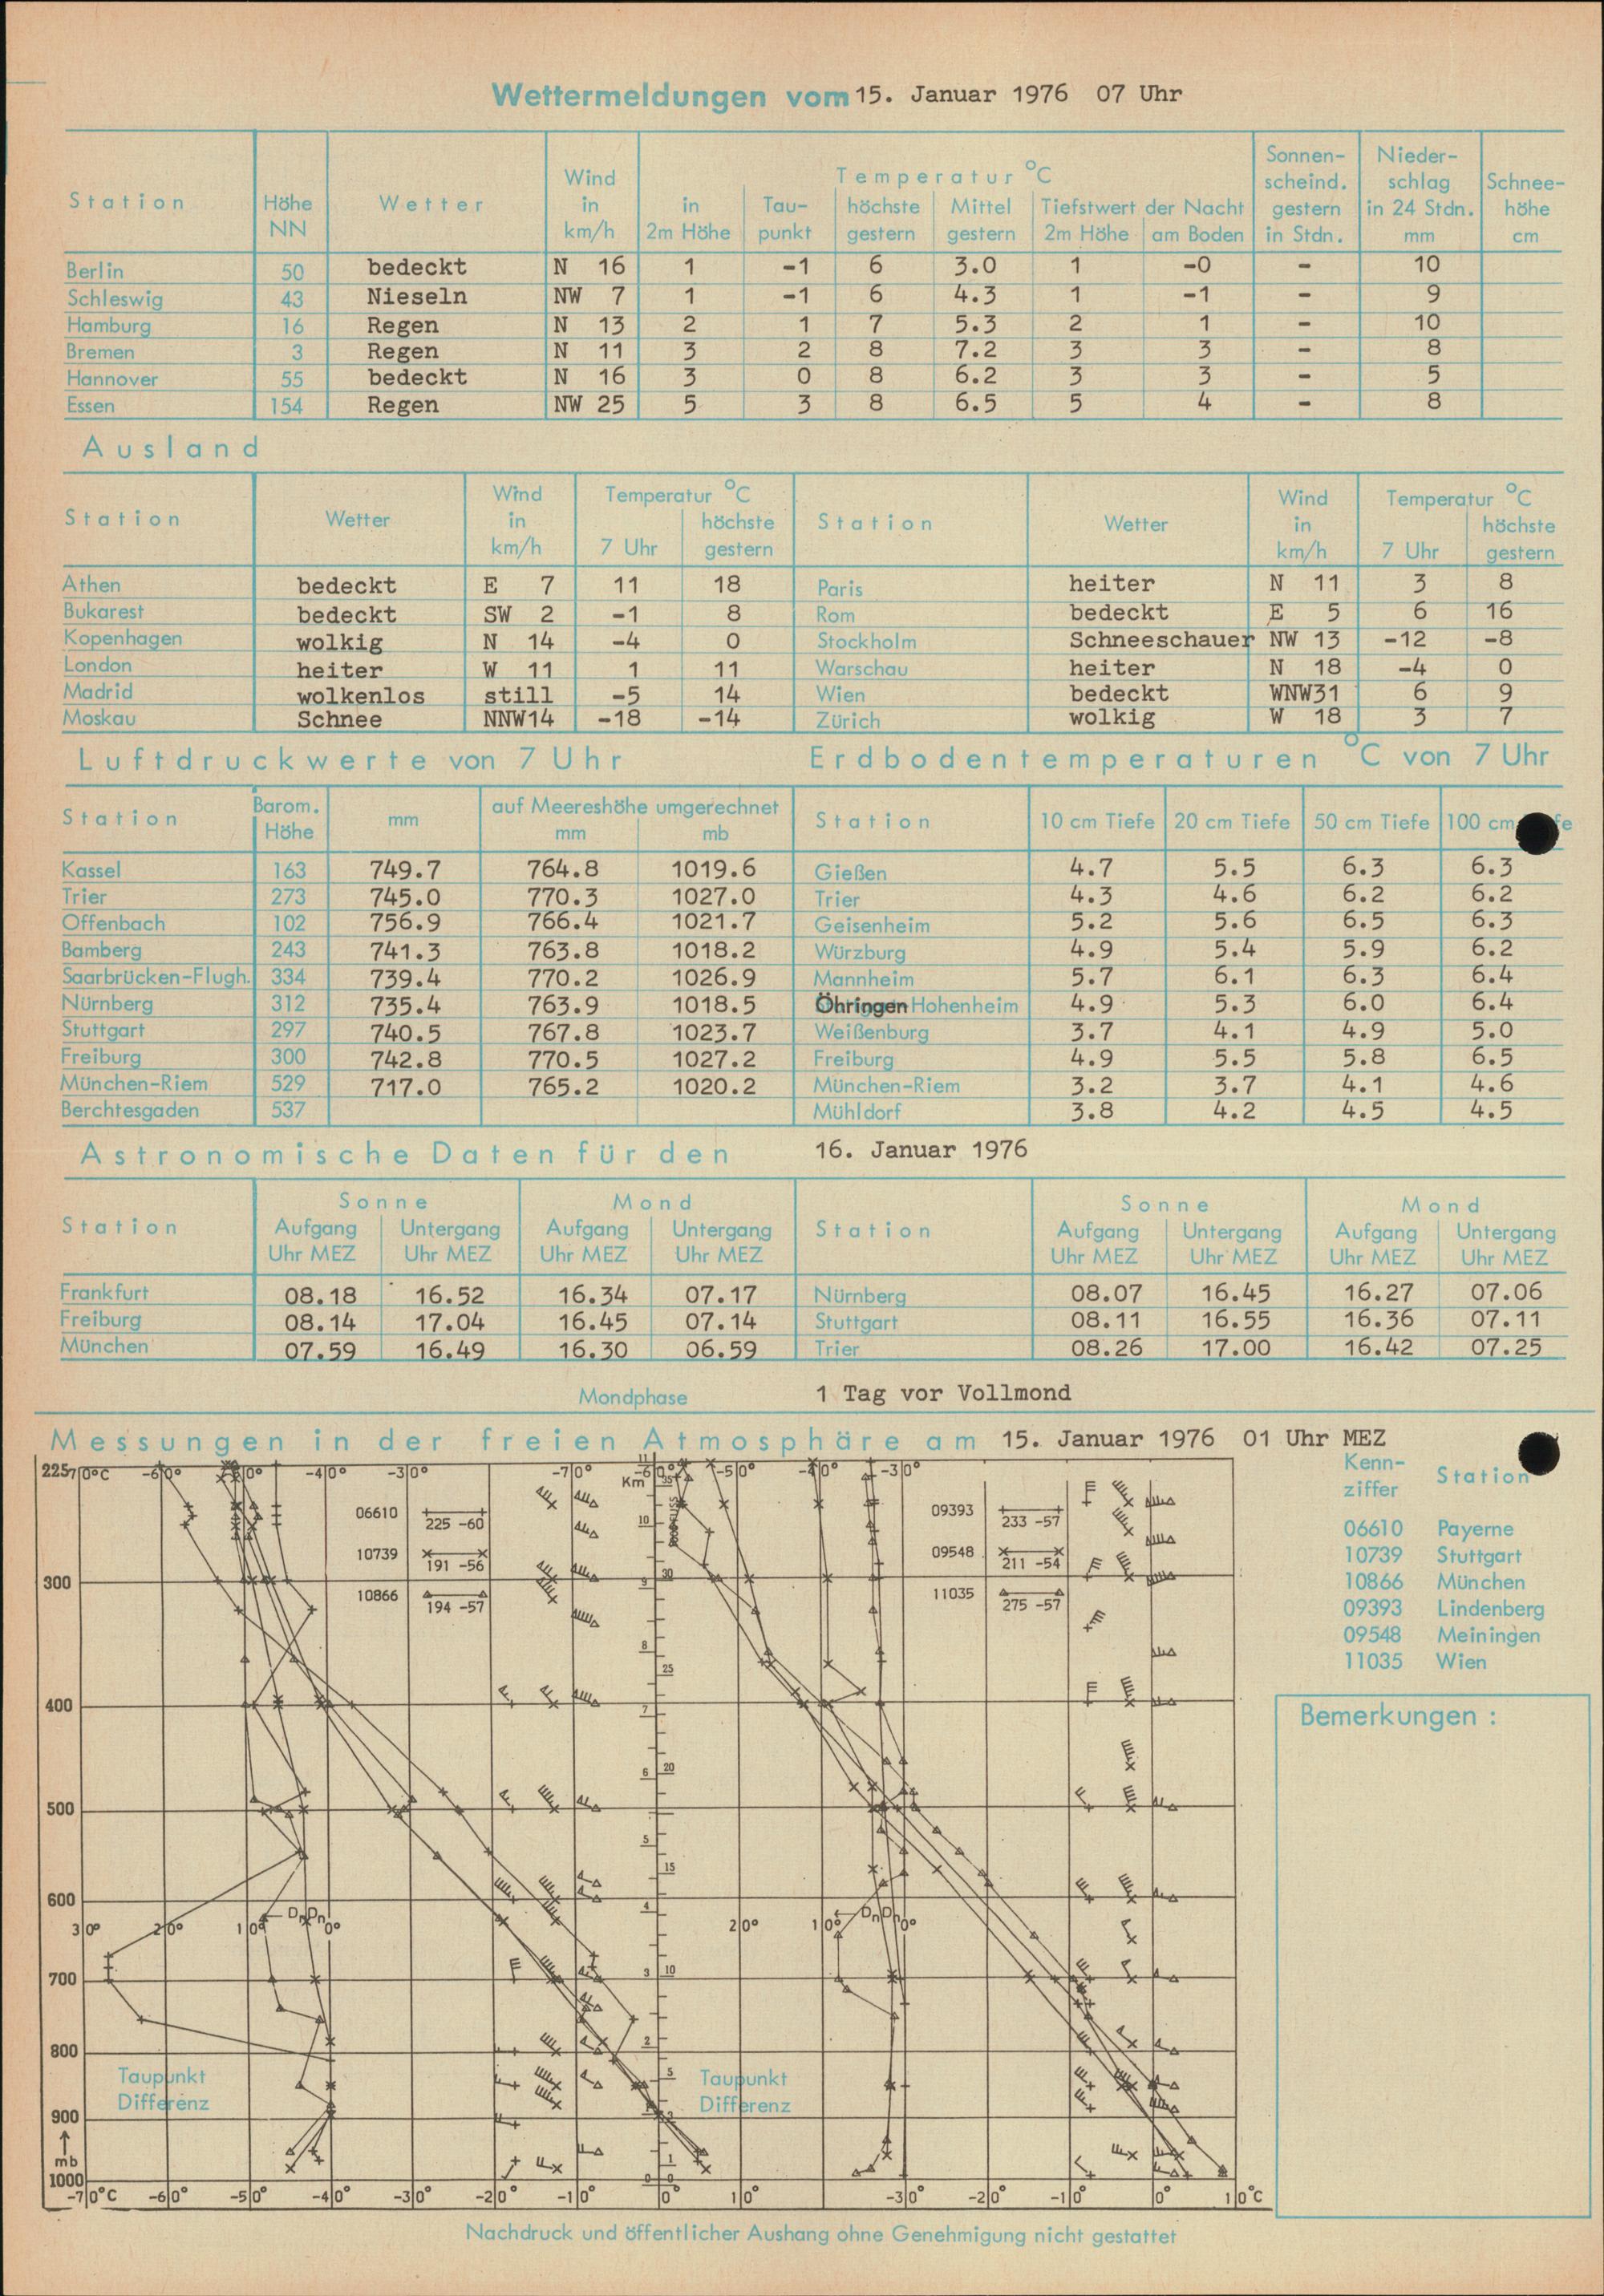 Wettermeldungen vom 15. Januar 1976 07 Uhr
Station Höhe NN Wetter Wind in km/h Temperatur °C in 2m Höhe Tau-punkt höchste gestern Mittel gestern Tiefstwert der Nacht 2m Höhe am Boden Sonnen-scheind. gestern in Stdn. Nieder-schlag in 24 Stdn. mm Schnee-höhe cm
Berlin 50 bedeckt N 16 1 -1 6 3.0 1 -0 - 10
Schleswig 43 Nieseln NW 7 1 -1 6 4.3 1 -1 - 9
Hamburg 16 Regen N 13 2 1 7 5.3 2 1 - 10
Bremen 3 Regen N 11 3 2 8 7.2 3 3 - 8
Hannover 55 bedeckt N 16 3 0 8 6.2 3 3 - 5
Essen 154 Regen NW 25 5 3 8 6.5 5 4 - 8
Ausland
Station Wetter Wind in km/h Temperatur °C 7 Uhr höchste gestern Station Wetter Wind in km/h Temperatur °C 7 Uhr höchste gestern
Athen bedeckt E 7 11 18 Paris heiter N 11 3 8
Bukarest bedeckt SW 2 -1 8 Rom bedeckt E 5 6 16
Kopenhagen wolkig N 14 -4 0 Stockholm Schneeschauer NW 13 -12 -8
London heiter W 11 1 11 Warschau heiter N 18 -4 0
Madrid wolkenlos still -5 14 Wien bedeckt WNW31 6 9
Moskau Schnee NNW14 -18 -14 Zürich wolkig W 18 3 7
Luftdruckwerte von 7 Uhr Erdbodentemperaturen °C von 7 Uhr
Station Barom. Höhe mm auf Meereshöhe umgerechnet mm mb Station 10 cm Tiefe 20 cm Tiefe 50 cm Tiefe 100 cm
Kassel 163 749.7 764.8 1019.6 Gießen 4.7 5.5 6.3 6.3
Trier 273 745.0 770.3 1027.0 Trier 4.3 4.6 6.2 6.2
Offenbach 102 756.9 766.4 1021.7 Geisenheim 5.2 5.6 6.5 6.3
Bamberg 243 741.3 763.8 1018.2 Würzburg 4.9 5.4 5.9 6.2
Saarbrücken-Flugh. 334 739.4 770.2 1026.9 Mannheim 5.7 6.1 6.3 6.4
Nürnberg 312 735.4 763.9 1018.5 Öhringen Hohenheim 4.9 5.3 6.0 6.4
Stuttgart 297 740.5 767.8 1023.7 Weißenburg 3.7 4.1 4.9 5.0
Freiburg 300 742.8 770.5 1027.2 Freiburg 4.9 5.5 5.8 6.5
München-Riem 529 717.0 765.2 1020.2 München-Riem 3.2 3.7 4.1 4.6
Berchtesgaden 537 Mühldorf 3.8 4.2 4.5 4.5
Astronomische Daten für den 16. Januar 1976
Station Sonne Aufgang Uhr MEZ Untergang Uhr MEZ Mond Aufgang Uhr MEZ Untergang Uhr MEZ Station Sonne Aufgang Uhr MEZ Untergang Uhr MEZ Mond Aufgang Uhr MEZ Untergang Uhr MEZ
Frankfurt 08.18 16.52 16.34 07.17 Nürnberg 08.07 16.45 16.27 07.06
Freiburg 08.14 17.04 16.45 07.14 Stuttgart 08.11 16.55 16.36 07.11
München 07.59 16.49 16.30 06.59 Trier 08.26 17.00 16.42 07.25
Mondphase 1 Tag vor Vollmond
Messungen in der freien Atmosphäre am 15. Januar 1976 01 Uhr MEZ
225 -70°C -60° -40° -30° -70° -60° -50° -40° -30°
Km
06610 225 -60 09393 233 -57
10739 191 -56 09548 211 -54
10866 194 -57 11035 275 -57
300
400
500
600
30° 20° 10° Dn Dn 0° 20° 10° Dn Dn 0°
700
800
Taupunkt Differenz Taupunkt Differenz
900
mb
1000
-70°C -60° -50° -40° -30° -20° -10° 0° 10° -30° -20° -10° 0° 10°C
Kenn-ziffer Station
06610 Payerne
10739 Stuttgart
10866 München
09393 Lindenberg
09548 Meiningen
11035 Wien
Bemerkungen :
Nachdruck und öffentlicher Aushang ohne Genehmigung nicht gestattet